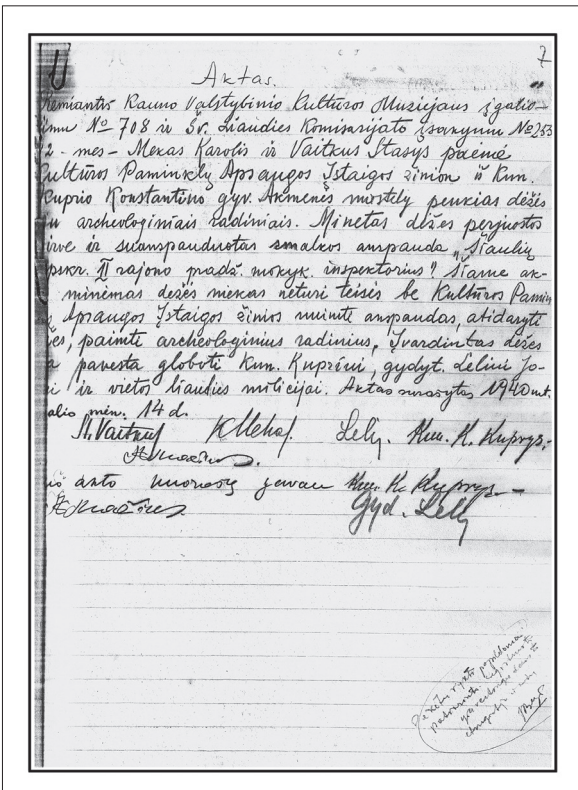 7
Aktas.
Remiantis Kauno Valstybinio Kultūros Muziejaus įgalio-
imu № 708 ir Šv. Liaudies Komisarijato įsakymu № 253
2 - mes - Mekas Karolis ir Vaitkus Stasys paėmė
Kultūros Paminklų Apsaugos Įstaigos žinion iš Kun.
Kuprio Konstantino gyv. Akmenės mostely penkias dėžės
su archeologiniais radiniais. Minetas dėžes perjuostos
virve ir suanspauduotas smalkos anspauda „Šiaulių
apskr. II rajono pradž. mokyk. inspektorius" Šiame ak-
minėmas dežės niekas neturi teisės be Kultūros Pamin
Apsaugos Įstaigos žinios nuimti anspaudas, atidaryti
es, paimti archeologinius radinius, Įvardintas dėžes
pavesta globoti kun. Kupriui, gydyt. Leliui Jo-
ui ir vietos liaudies milicijai. Aktas surašytas 1940 mt.
alio mėn. 14 d.
St. Vaitkus K Mekas. Lelį. Kun. K. Kuprys.
io akto nuorašą gavau Kun. K. Kuprys.
Gyd. Lelį